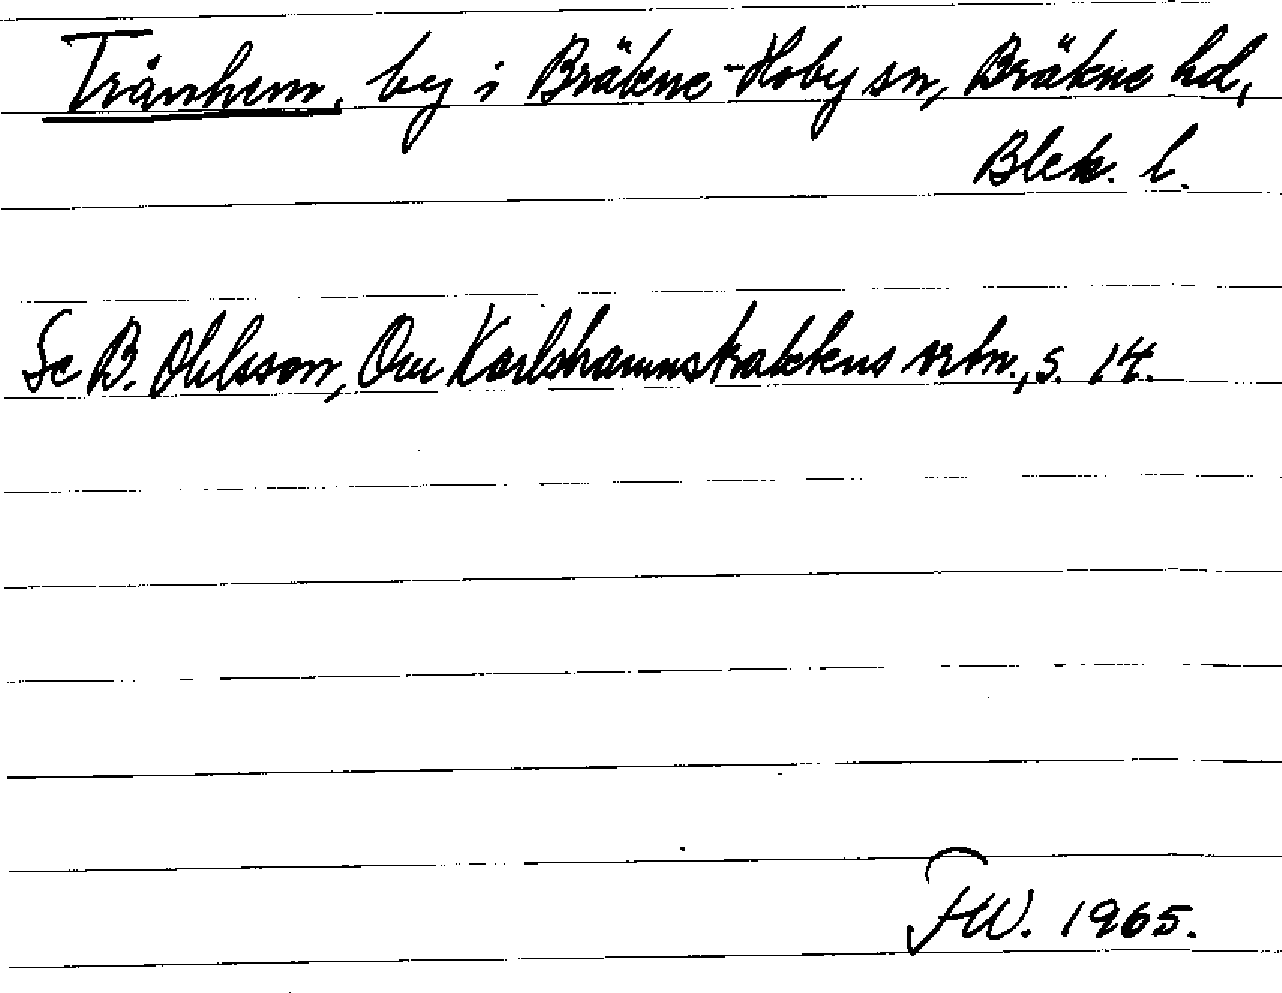 Trånhem, by i Bräkne-Hoby sn, Bräkne hd,
Blek. l.
Se B. Ohlsson, Om Karlshamnstraktens ortn., s. 14.
FW. 1965.